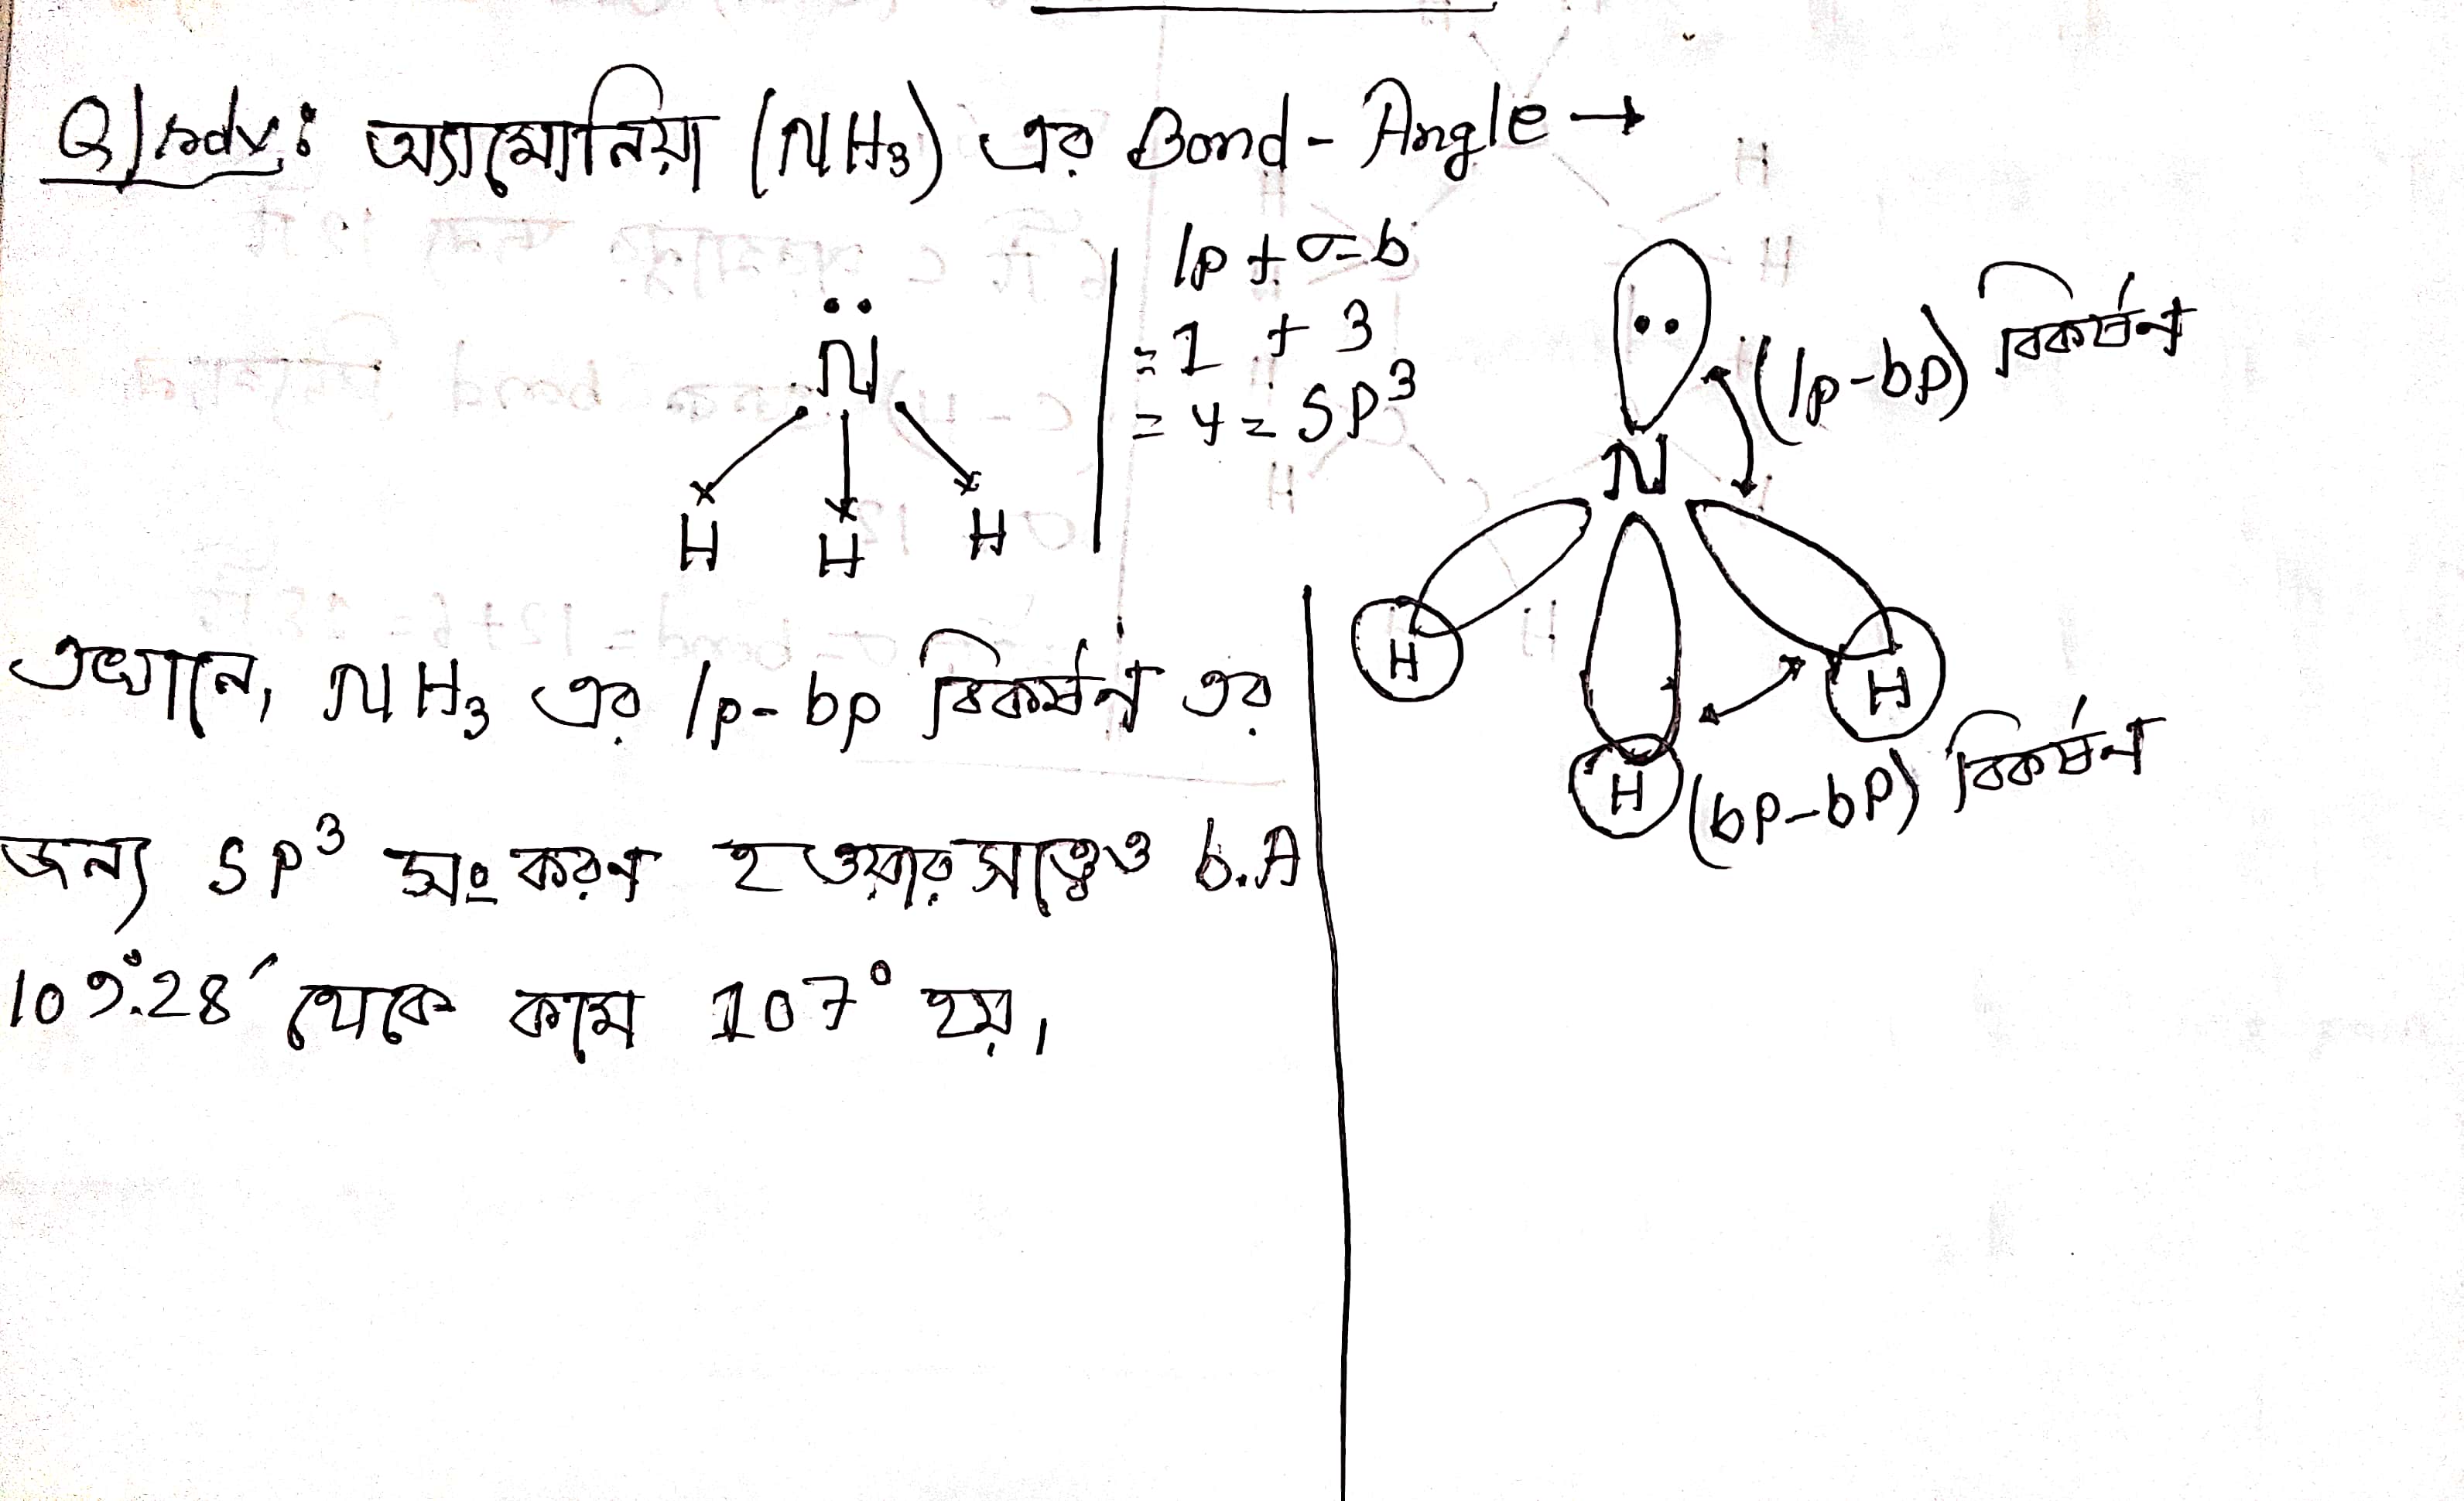 অ্যামোনিয়া (NH₃) এর Bond-Angle →
lp + σ-b
= 1 + 3
= 4 = SP³
N
H H H
(lp-bp) বিকর্ষন
N
H
H
H
(bp-bp) বিকর্ষন
এখানে, NH₃ এর lp-bp বিকর্ষন এর
জন্য SP³ সংকরন হওয়ার সত্ত্বেও b.A
109°.28′ থেকে কমে 107° হয়।